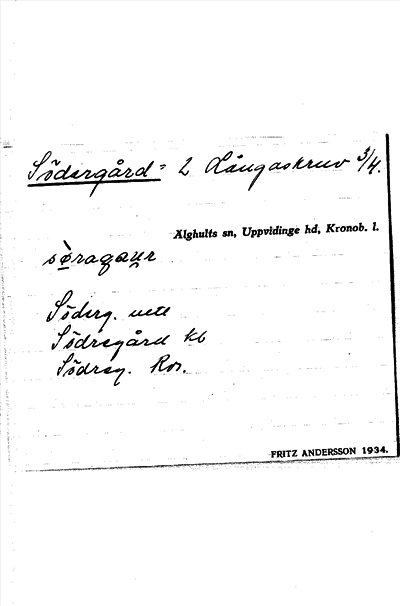 Södergård = 2 Långaskruv 3/4.
Älghults sn, Uppvidinge hd, Kronob. l.
Söderg. uttl
Södregård kb
Södreg. Ror.
FRITZ ANDERSSON 1934.